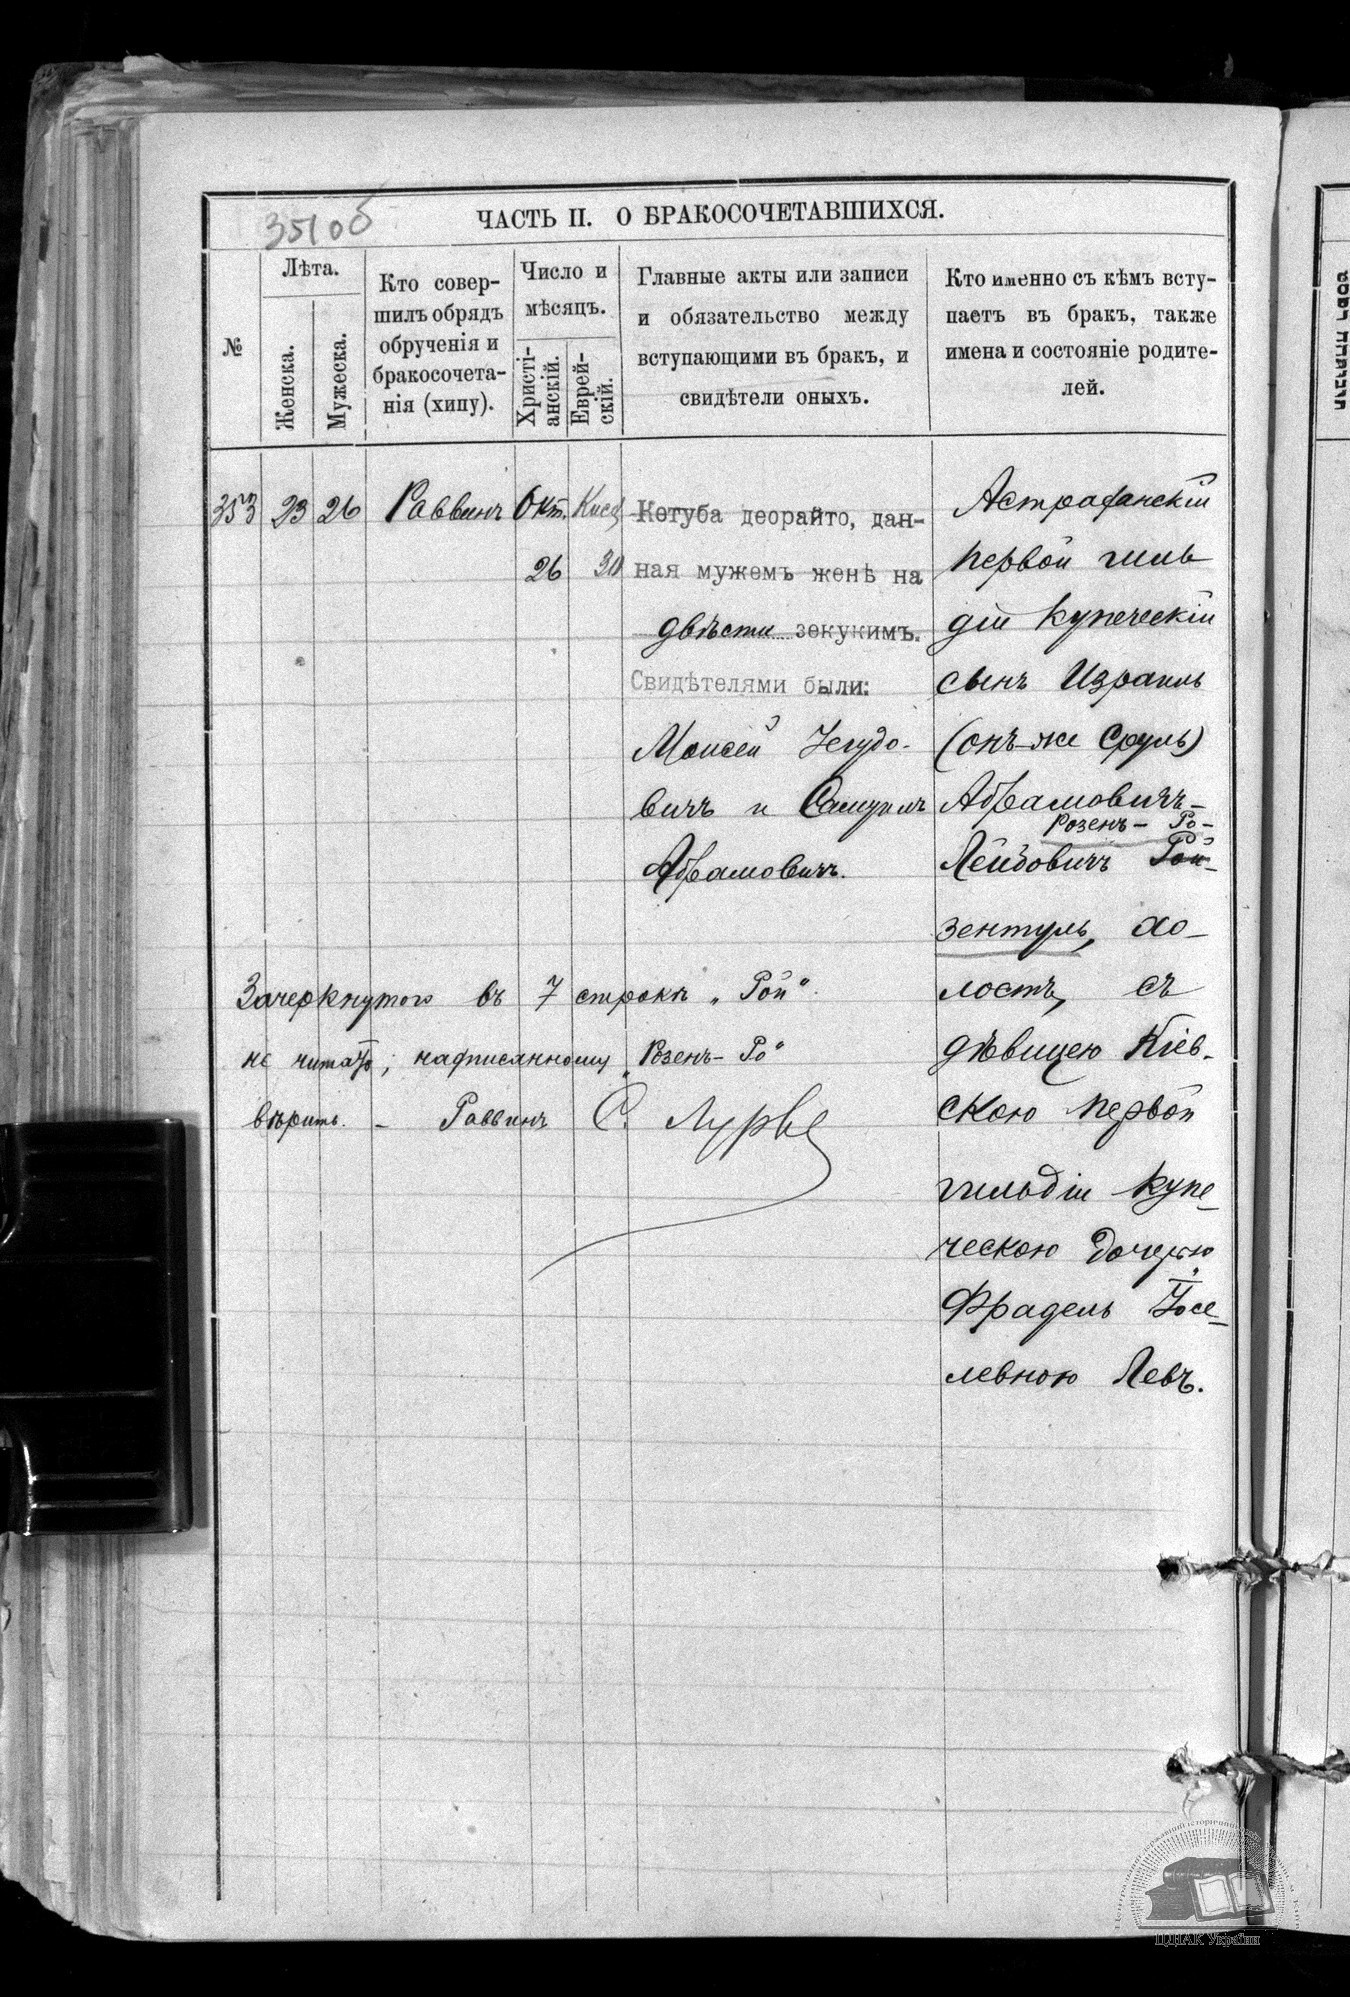 351об
ЧАСТЬ II. О БРАКОСОЧЕТАВШИХСЯ.
№
Лѣта.
Женска.
Мужеска.
Кто совер-
шилъ обрядъ
обрученія и
бракосочета-
нія (хипу).
Число и
мѣсяцъ.
Христі-
анскій.
Еврей-
скій.
Главные акты или записи
и обязательство между
вступающими въ бракъ, и
свидѣтели оныхъ.
Кто именно съ кѣмъ всту-
паетъ въ бракъ, также
имена и состояніе родите-
лей.
353 23 26 Раввинъ Окт. Кисл
26 30
Кетуба деорайто, дан-
ная мужемъ женѣ на
двѣсти зекукимъ.
Свидѣтелями были:
Моисей Іегудо-
вичъ и Самуилъ
Абрамовичъ.
Астраханскій
первой гиль
діи купеческій
сынъ Израиль
(онъ-же Сруль)
Абрамовичъ-
Розенъ- Ро-
Лейбовичъ Рой-
зентуль, хо-
лостъ, съ
дѣвицею Кіев-
скою первой
гильдіи купе-
ческою дочерью
Фрадель Іосе-
левною Левъ.
Зачеркнутого въ 7 строкѣ „Рой"
не читать, надписанному „Розенъ-Ро"
вѣрить. - Раввинъ С. Лурье
ЦДІАК України